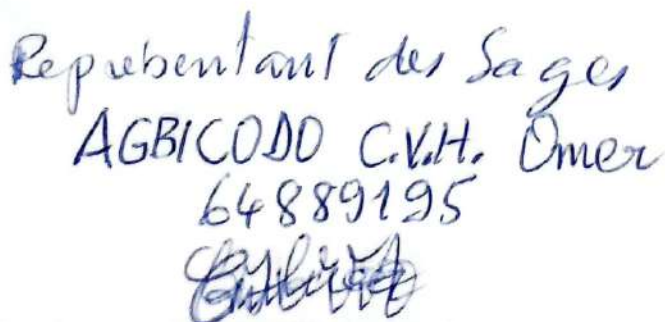 Représentant des Sages
AGBICODO C.V.H. Omer
64889195